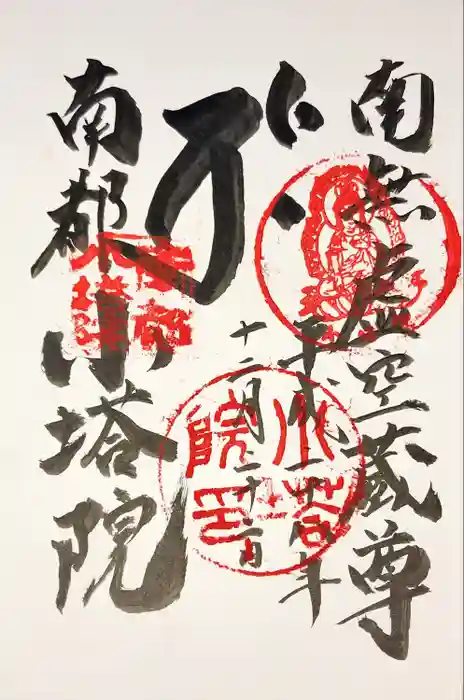 南無虚空蔵尊
平成
年
十二月
南都小塔院
小塔
院印